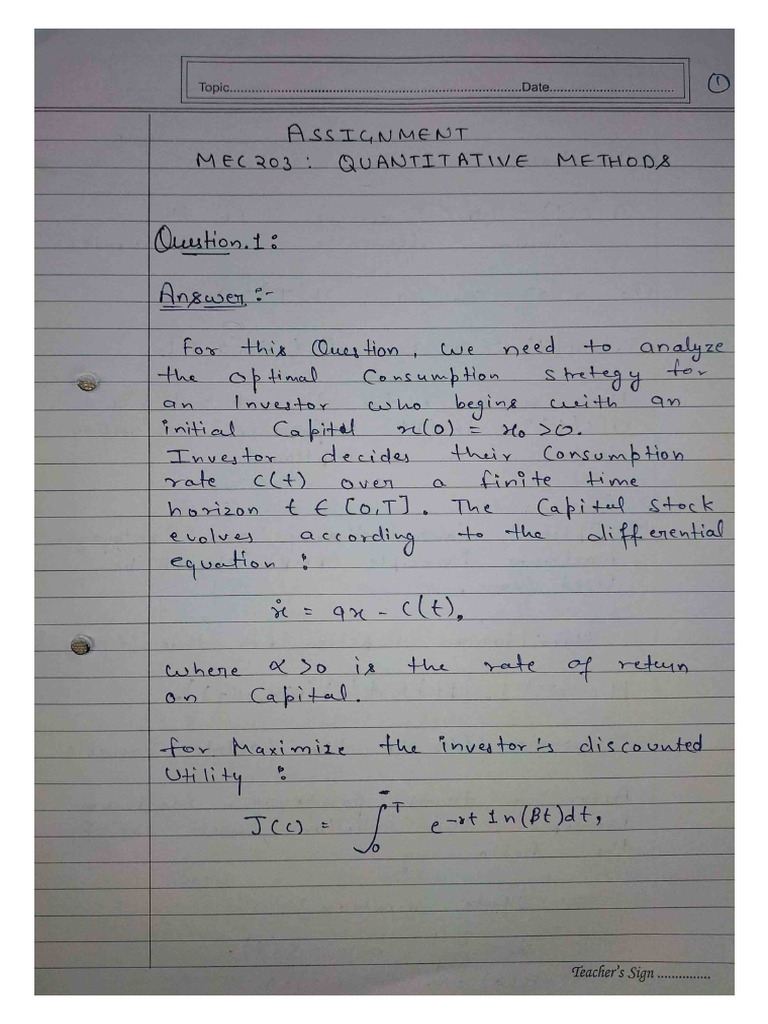 Topic..........Date..........
①
ASSIGNMENT
MEC203: QUANTITATIVE METHODS
Question.1:
Answer:-
For this Question, we need to analyze
the optimal Consumption stretegy for
an Investor who begins with an
initial Capital x(0) = x₀ >0.
Investor decides their Consumption
rate c(t) over a finite time
horizon t ∈ [0,T]. The Capital stock
evolves according to the differential
equation:
ẋ = ax - c(t),
where α >0 is the rate of return
on Capital.
for Maximize the investor's discounted
Utility:
J(c) = ∫₀ᵀ e-rt ln(βt)dt,
Teacher's Sign ...............